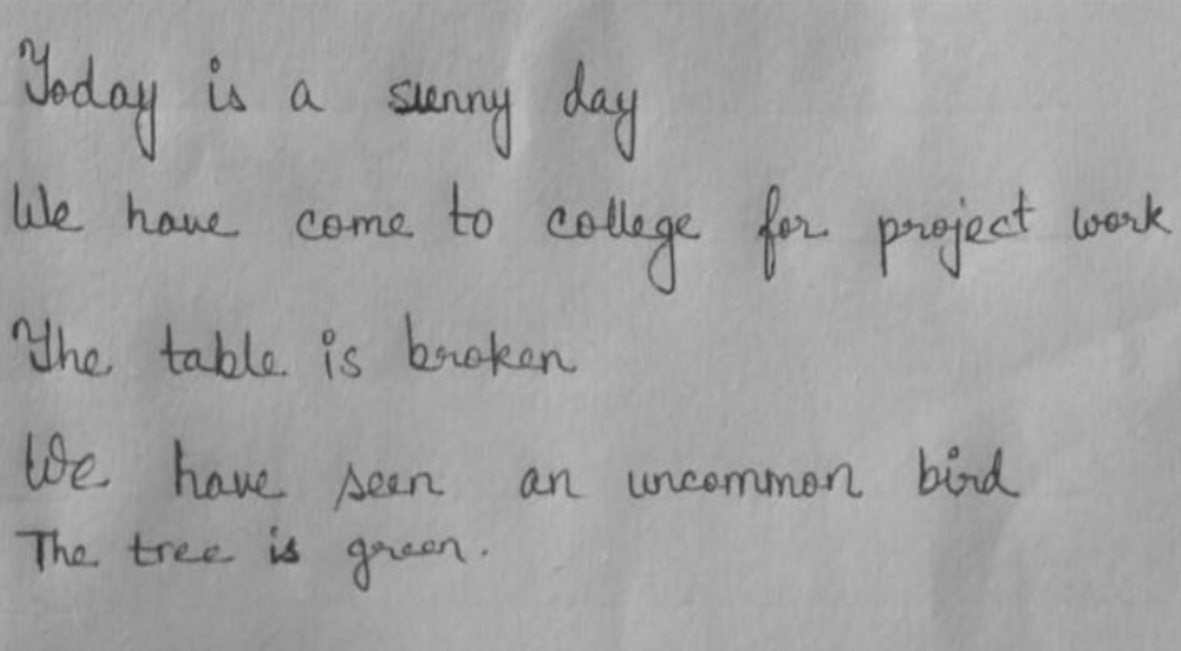 Today is a sunny day
We have come to college for project work
The table is broken
We have seen an uncommon bird
The tree is green.